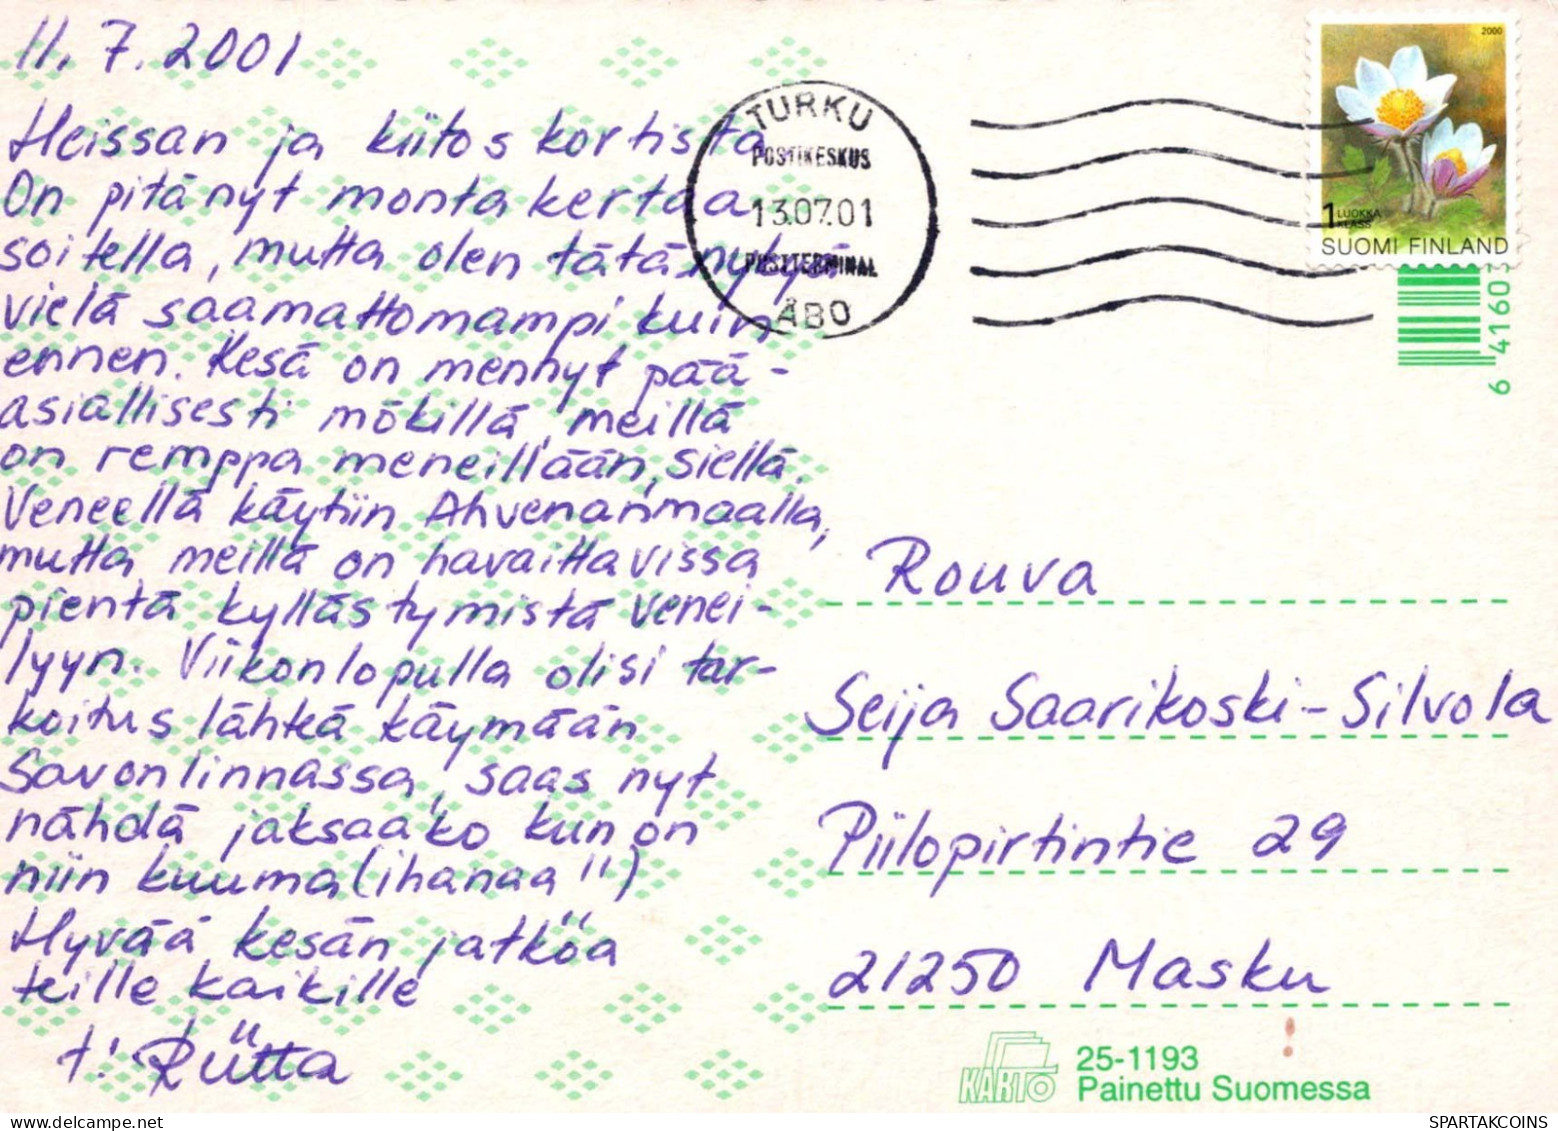 11.7.2001
Heissan ja kiitos kortista
On pitänyt monta kertaa
soitella, mutta olen tätä nykyä
vielä saamattomampi kuin
ennen. Kesä on mennyt pää-
asiallisesti mökillä, meillä
on remppa meneillään, siellä.
Veneellä käytiin Ahvenanmaalla,
mutta meillä on havaittavissa
pientä kyllästymistä venei-
lyyn. Viikonlopulla olisi tar-
koitus lähteä käymään
Savonlinnassa, saas nyt
nähdä jaksaako kun on
niin kuuma (ihanaa!!)
Hyvää kesän jatkoa
teille kaikille
t: Riitta
TURKU
POSTIKESKUS
13.07.01
POSTTERMINAL
ÅBO
2000
1 LUOKKA
KLASS
SUOMI FINLAND
6 41603
Rouva
Seija Saarikoski-Silvola
Piilopirtintie 29
21250 Masku
KARTO
25-1193
Painettu Suomessa
SPARTAKCOINS